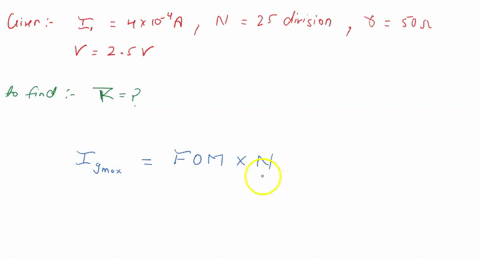 Given :- I₁ = 4×10⁻⁴A , N = 25 division , r = 50Ω
V = 2.5 V
to find :- R = ?
I_gmax = FOM × N